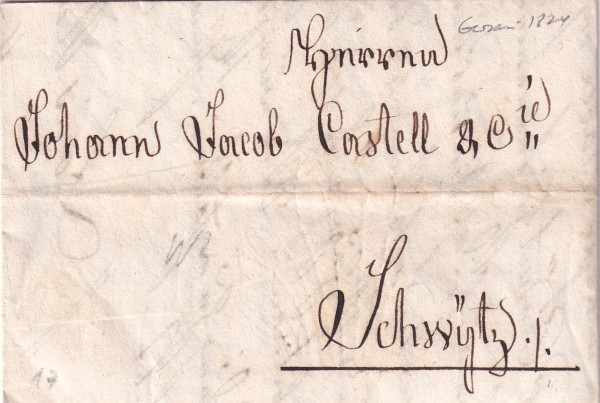 Gersau 1824
Herren
Johann Jacob Castell & Cie
Schwÿtz ./.
17